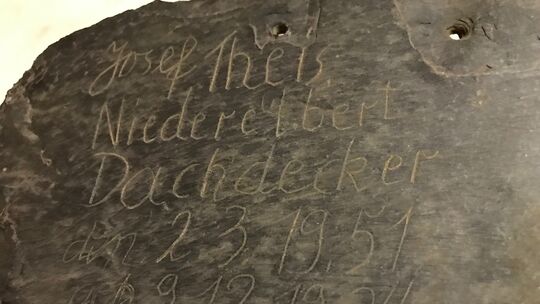 Josef Theis
Niederelbert
Dachdecker
den. 2.3.1951
geb. 9.12.1924